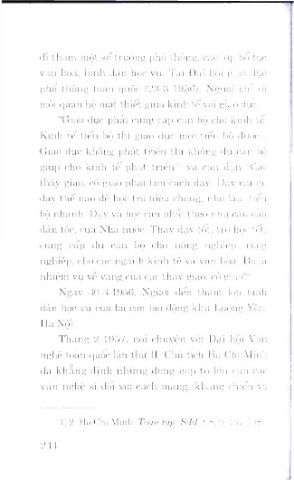 đi thăm một số trường phổ thông, các lớp bổ túc
văn hóa, bình dân học vụ. Tại Đại hội giáo dục
phổ thông toàn quốc (23-3-1956), Người chỉ rõ
mối quan hệ mật thiết giữa kinh tế với giáo dục:
"Giáo dục phải cung cấp cán bộ cho kinh tế.
Kinh tế tiến bộ thì giáo dục mới tiến bộ được...
Giáo dục không phát triển thì không đủ cán bộ
giúp cho kinh tế phát triển" và căn dặn "Các
thầy giáo, cô giáo phải tìm cách dạy. Dạy cái gì,
dạy thế nào để học trò hiểu chóng, nhớ lâu, tiến
bộ nhanh. Dạy và học cần phải theo nhu cầu của
dân tộc, của Nhà nước. Thầy dạy tốt, trò học tốt,
cung cấp đủ cán bộ cho nông nghiệp, công
nghiệp, cho các ngành kinh tế và văn hóa. Đó là
nhiệm vụ vẻ vang của các thầy giáo, cô giáo"
Ngày 30-3-1956, Người đến thăm lớp bình
dân học vụ của bà con lao động khu Lương Yên,
Hà Nội.
Tháng 2-1957, nói chuyện với Đại hội Văn
nghệ toàn quốc lần thứ II, Chủ tịch Hồ Chí Minh
đã khẳng định những đóng góp to lớn của các
văn nghệ sĩ đối với cách mạng, kháng chiến và
1, 2. Hồ Chí Minh: Toàn tập, Sđd, t.8,